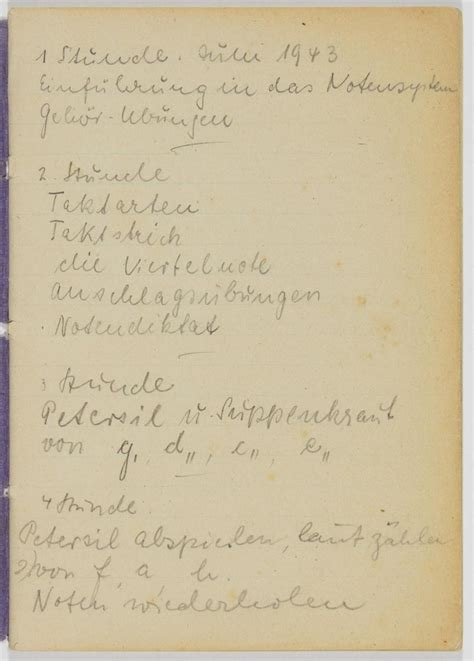 1 Stunde. Juli 1943
Einführung in das Notensystem
Gehör-Übungen
2. Stunde
Taktarten
Taktstrich
die Viertelnote
Anschlagsübungen
Notendiktat
3 Stunde
Petersil u. Suppenkraut
von g, d,, c,, e,,
4 Stunde.
Petersil abspielen, laut zählen
2) von f, a h.
Noten wiederholen